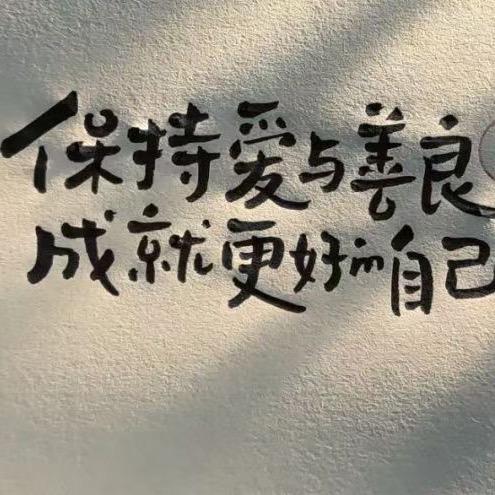 保持爱与善良
成就更好的自己